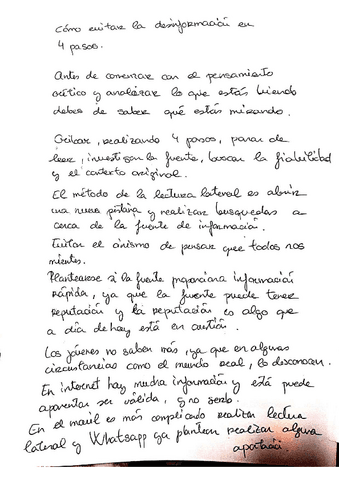 Cómo evitar la desinformación en
4 pasos.
Antes de comenzar con el pensamiento
crítico y analizar lo que estás leyendo
debes de saber qué estás mirando.
realizando 4 pasos, parar de
leer, investigar la fuente, buscar la fiabilidad
y el contexto original.
El método de la lectura lateral es abrir
una nueva pestaña y realizar busquedas a
cerca de la fuente de información.
Evitar el cinismo de pensar que todos nos
mienten.
Plantearse si la fuente proporciona información
rápida, ya que la fuente puede tener
reputación y la reputación es algo que
a día de hoy está en
Los jóvenes no saben más, ya que en algunas
circustancias como el mundo real, lo desconocen.
En internet hay mucha información y está puede
aparentar ser válida, y no serlo.
En el mail es más complicado realizar lectura
lateral y Whatsapp ya plantean realizar alguna